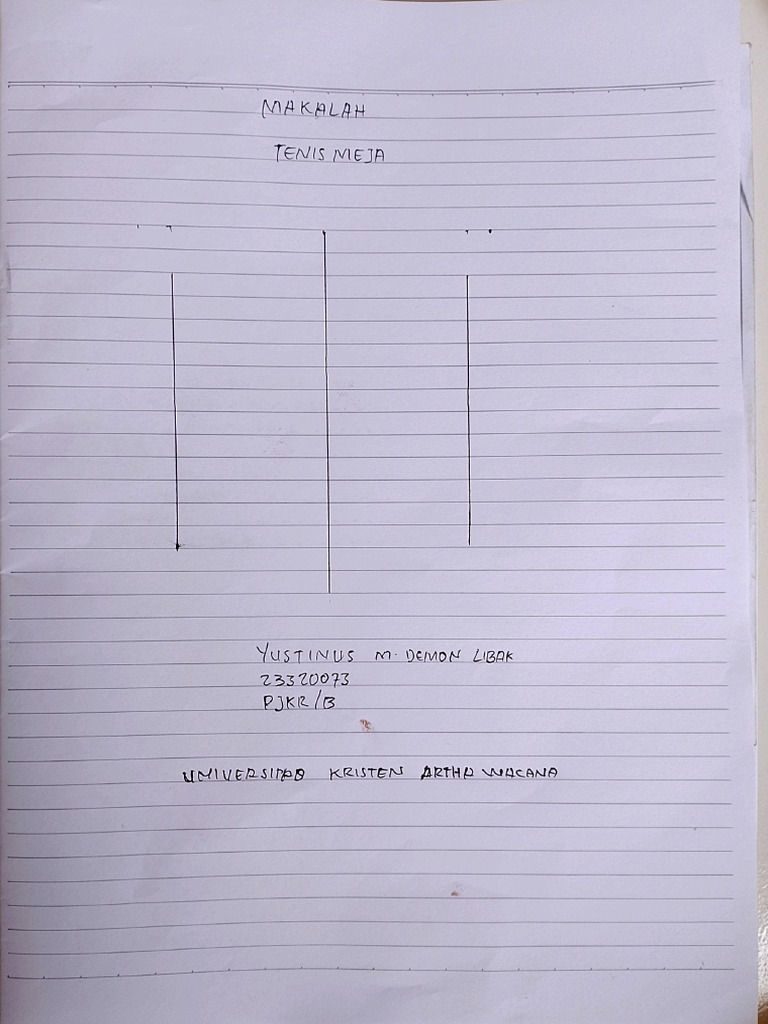 MAKALAH
TENIS MEJA
YUSTINUS M. DEMON LIBAK
23320073
PJKR/B
UNIVERSITAS KRISTEN ARTHA WACANA